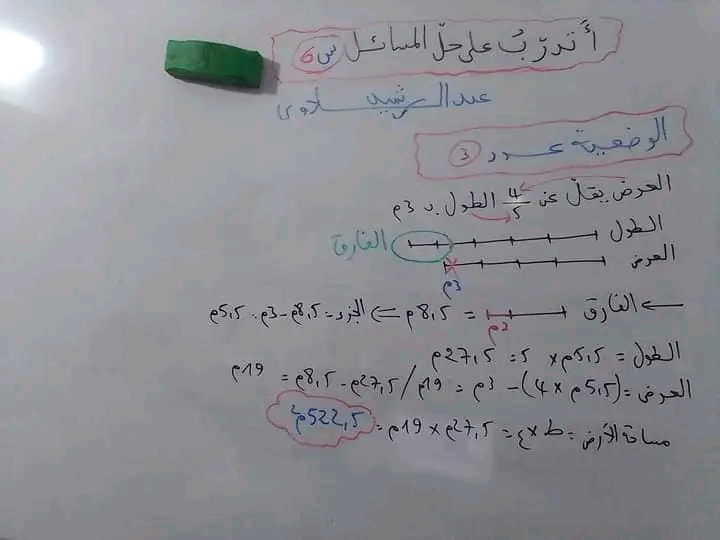 أتدرّبُ على حلّ المسائل س6
عبد الرشيد سلاوي
الوضعية عـدد 3
العرض يقلّ عن 4/5 الطول بـ 3م
الطول
الفارق
العرض
3م
← الفارق = 8,5م ⇐ الجزء = 8,5م - 3م = 5,5م
الطول = 5,5م × 5 = 27,5م
العرض = (5,5م × 4) - 3م = 19م / 27,5م - 8,5م = 19م
مساحة الأرض = ط × ع = 27,5م × 19م = 522,5م²